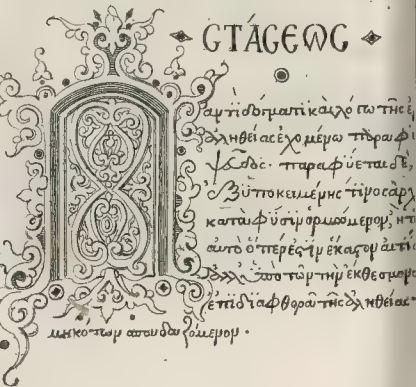 ϹΤΆϹΕΩϹ
Παντὶ δόγματι καὶ λόγω τῆς ἐ
ἀληθείας ἐχομένω παραφύ
ψεῦδος· παραφύεται δὲ,
ἐξ ὑποκειμένης τινὸς ἀρχ
κατὰ φύσιν ὁρμώμενον, ἢ τ
αὐτὸ ὅπερ ἐστὶν ἕκαστον αἰτίας
ἀλλ' ὑπὸ τῶν τὴν ἔκθεσμον
ἐπὶ διαφθορᾶ τῆς ἀληθείας
μηκότων σπουδαζόμενον.